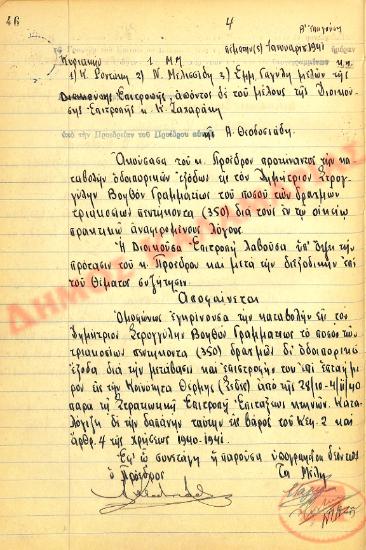 46
4
πέμπτην(ς) Ιανουαρίου 1941
Κυριακήν 1 ΜΜ κ.κ.
2) Ν. Μελισσίδη 3) Εμμ. μελών της
Διοικούσης Επιτροπής, απόντος δε του μέλους της Διοικού-
σης Επιτροπής κ. Κ. Ζαχαράκη
υπό την Προεδρείαν του Προέδρου αυτής Α. Θεοδοσιάδη.
Ακούσασα του κ. Προέδρου προτείναντος την κα-
ταβολήν οδοιπορικών εξόδων εις τον Δημήτριον Στρογ-
γύλην Βοηθόν Γραμματέως του ποσού των δραχμών
τριακοσίων πεντήκοντα (350) διά τους εν τω οικείω
πρακτικώ αναφερομένους λόγους.
Η Διοικούσα Επιτροπή λαβούσα υπ' όψει την
πρότασιν του κ. Προέδρου και μετά την διεξοδικήν επί
του θέματος συζήτησιν
Αποφαίνεται
Ομοφώνως εγκρίνουσα την καταβολήν εις τον
Δημήτριον Στρογγύλην Βοηθόν Γραμματέως το ποσόν των
τριακοσίων πεντήκοντα (350) δραχμών δι' οδοιπορικά
έξοδα διά την μετάβασιν και επιστροφήν του επί επταήμε-
ρον εις την Κοινότητα Θέρμης (Σέδες) από της 28/10-4/11/40
παρά τη Στρατιωτική Επιτροπή Επιτάξεως κτηνών. Κατα-
λογίζει δε την δαπάνην ταύτην εις βάρος του Κεφ. 2 και
άρθρ. 4 της χρήσεως 1940-1941.
Εφ' ω συνετάγη η παρούσα υπογραφείσα
ο Πρόεδρος Τα Μέλη
ΔΗΜΟΣ